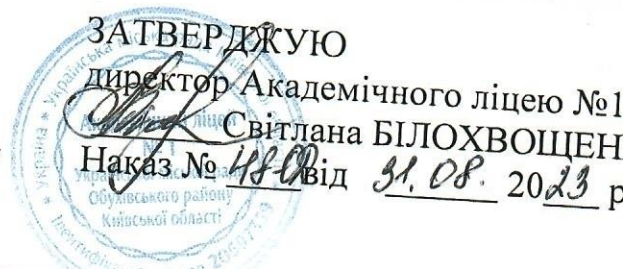 ЗАТВЕРДЖУЮ
директор Академічного ліцею №1
Світлана БІЛОХВОЩЕН
Наказ № від 31.08. 2023 р
Обухівського району
Київської області